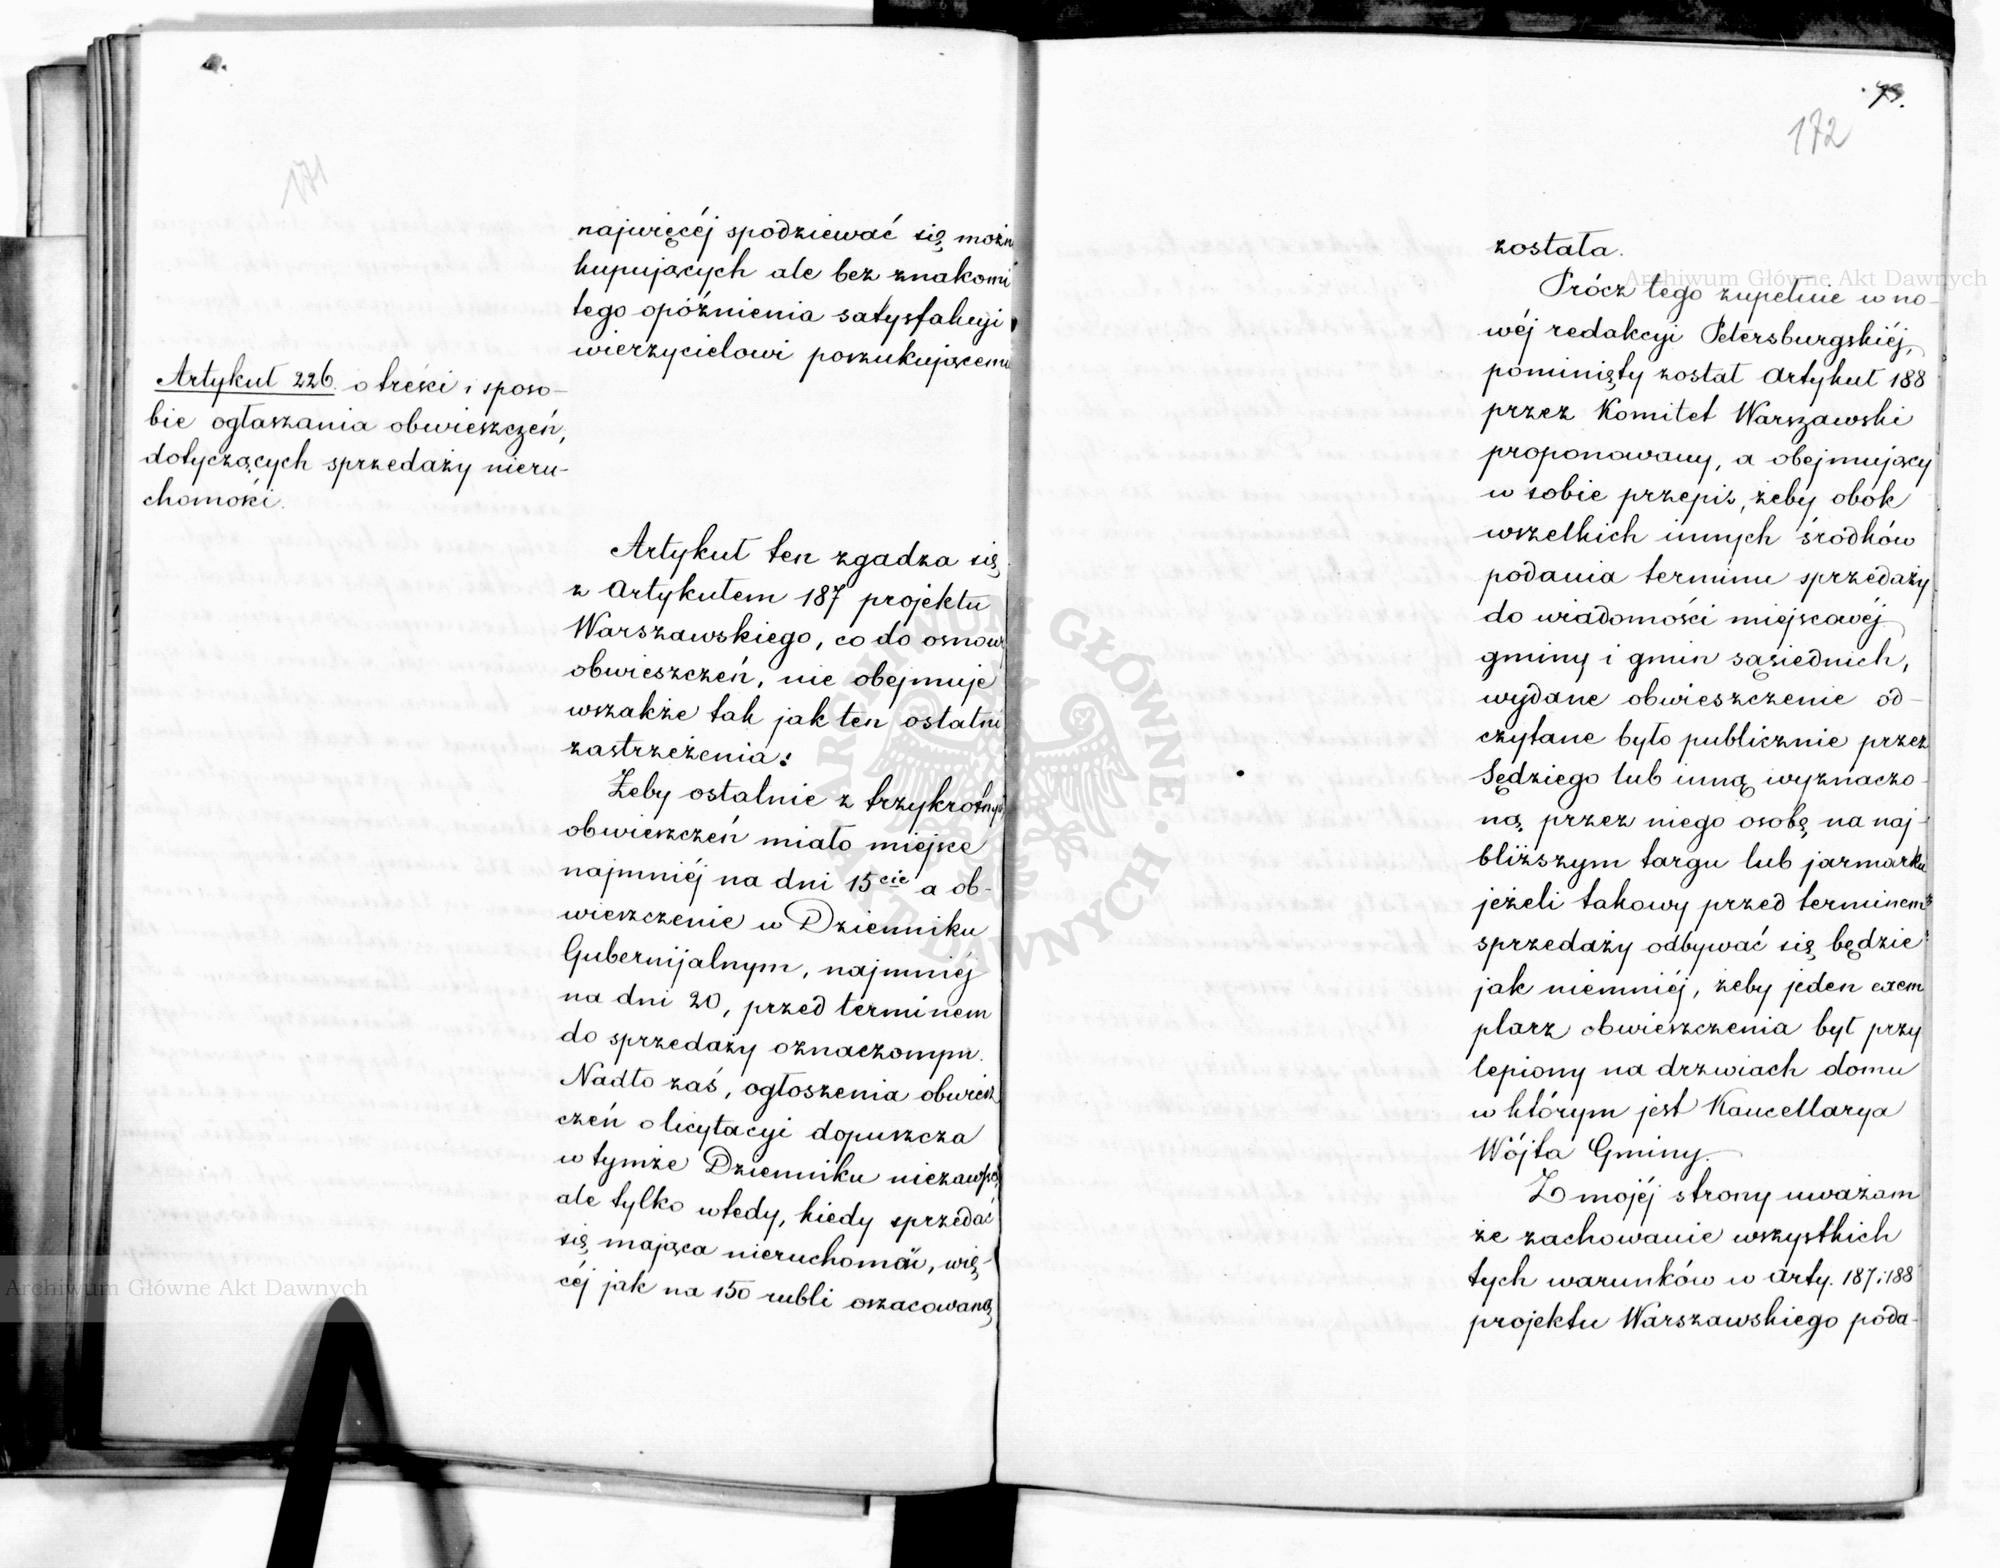 171
najwięcéj spodziewać się możn
kupujących ale bez znakomi
tego opóźnienia satysfakcyi
wierzycielowi poszukującemu
Artykuł 226. o treści i sposo-
bie ogłaszania obwieszczeń,
dotyczących sprzedaży nieru-
chomości.
Artykuł ten zgadza się
z Artykułem 187 projektu
Warszawskiego, co do osnowy
obwieszczeń, nie obejmuje
wszakże tak jak ten ostatni
zastrzeżenia:
Żeby ostatnie z trzykrotnych
obwieszczeń miało miejsce
najmniéj na dni 15cie a ob-
wieszczenie w Dzienniku
Gubernijalnym, najmniéj
na dni 20, przed terminem
do sprzedaży oznaczonym.
Nadto zaś, ogłoszenia obwiesz
czeń o licytacyi dopuszcza
w tymże Dzienniku niezawsze,
ale tylko wtedy, kiedy sprzedać
się mająca nieruchomość, wię-
céj jak na 150 rubli oszacowaną
172
została.
Prócz tego zupełnie w no-
wéj redakcyi Petersburgskiéj,
pominięty został Artykuł 188
przez Komitet Warszawski
proponowany, a obejmujący
w sobie przepis, żeby obok
wszelkich innych środków
podania terminu sprzedaży
do wiadomości miejscowéj
gminy i gmin sąsiednich,
wydane obwieszczenie od-
czytane było publicznie przez
Sędziego lub inną wyznaczo-
ną przez niego osobę na naj-
bliższym targu lub jarmarku
jeżeli takowy przed terminem
sprzedaży odbywać się będzie
jak niemniéj, żeby jeden exem
plarz obwieszczenia był przy
lepiony na drzwiach domu
w którym jest Kancellarya
Wójta Gminy.
Z mojéj strony uważam
że zachowanie wszystkich
tych warunków w arty. 187 i 188
projektu Warszawskiego poda-
Archiwum Główne Akt Dawnych
Archiwum Główne Akt Dawnych
ARCHIWUM GŁÓWNE AKT DAWNYCH